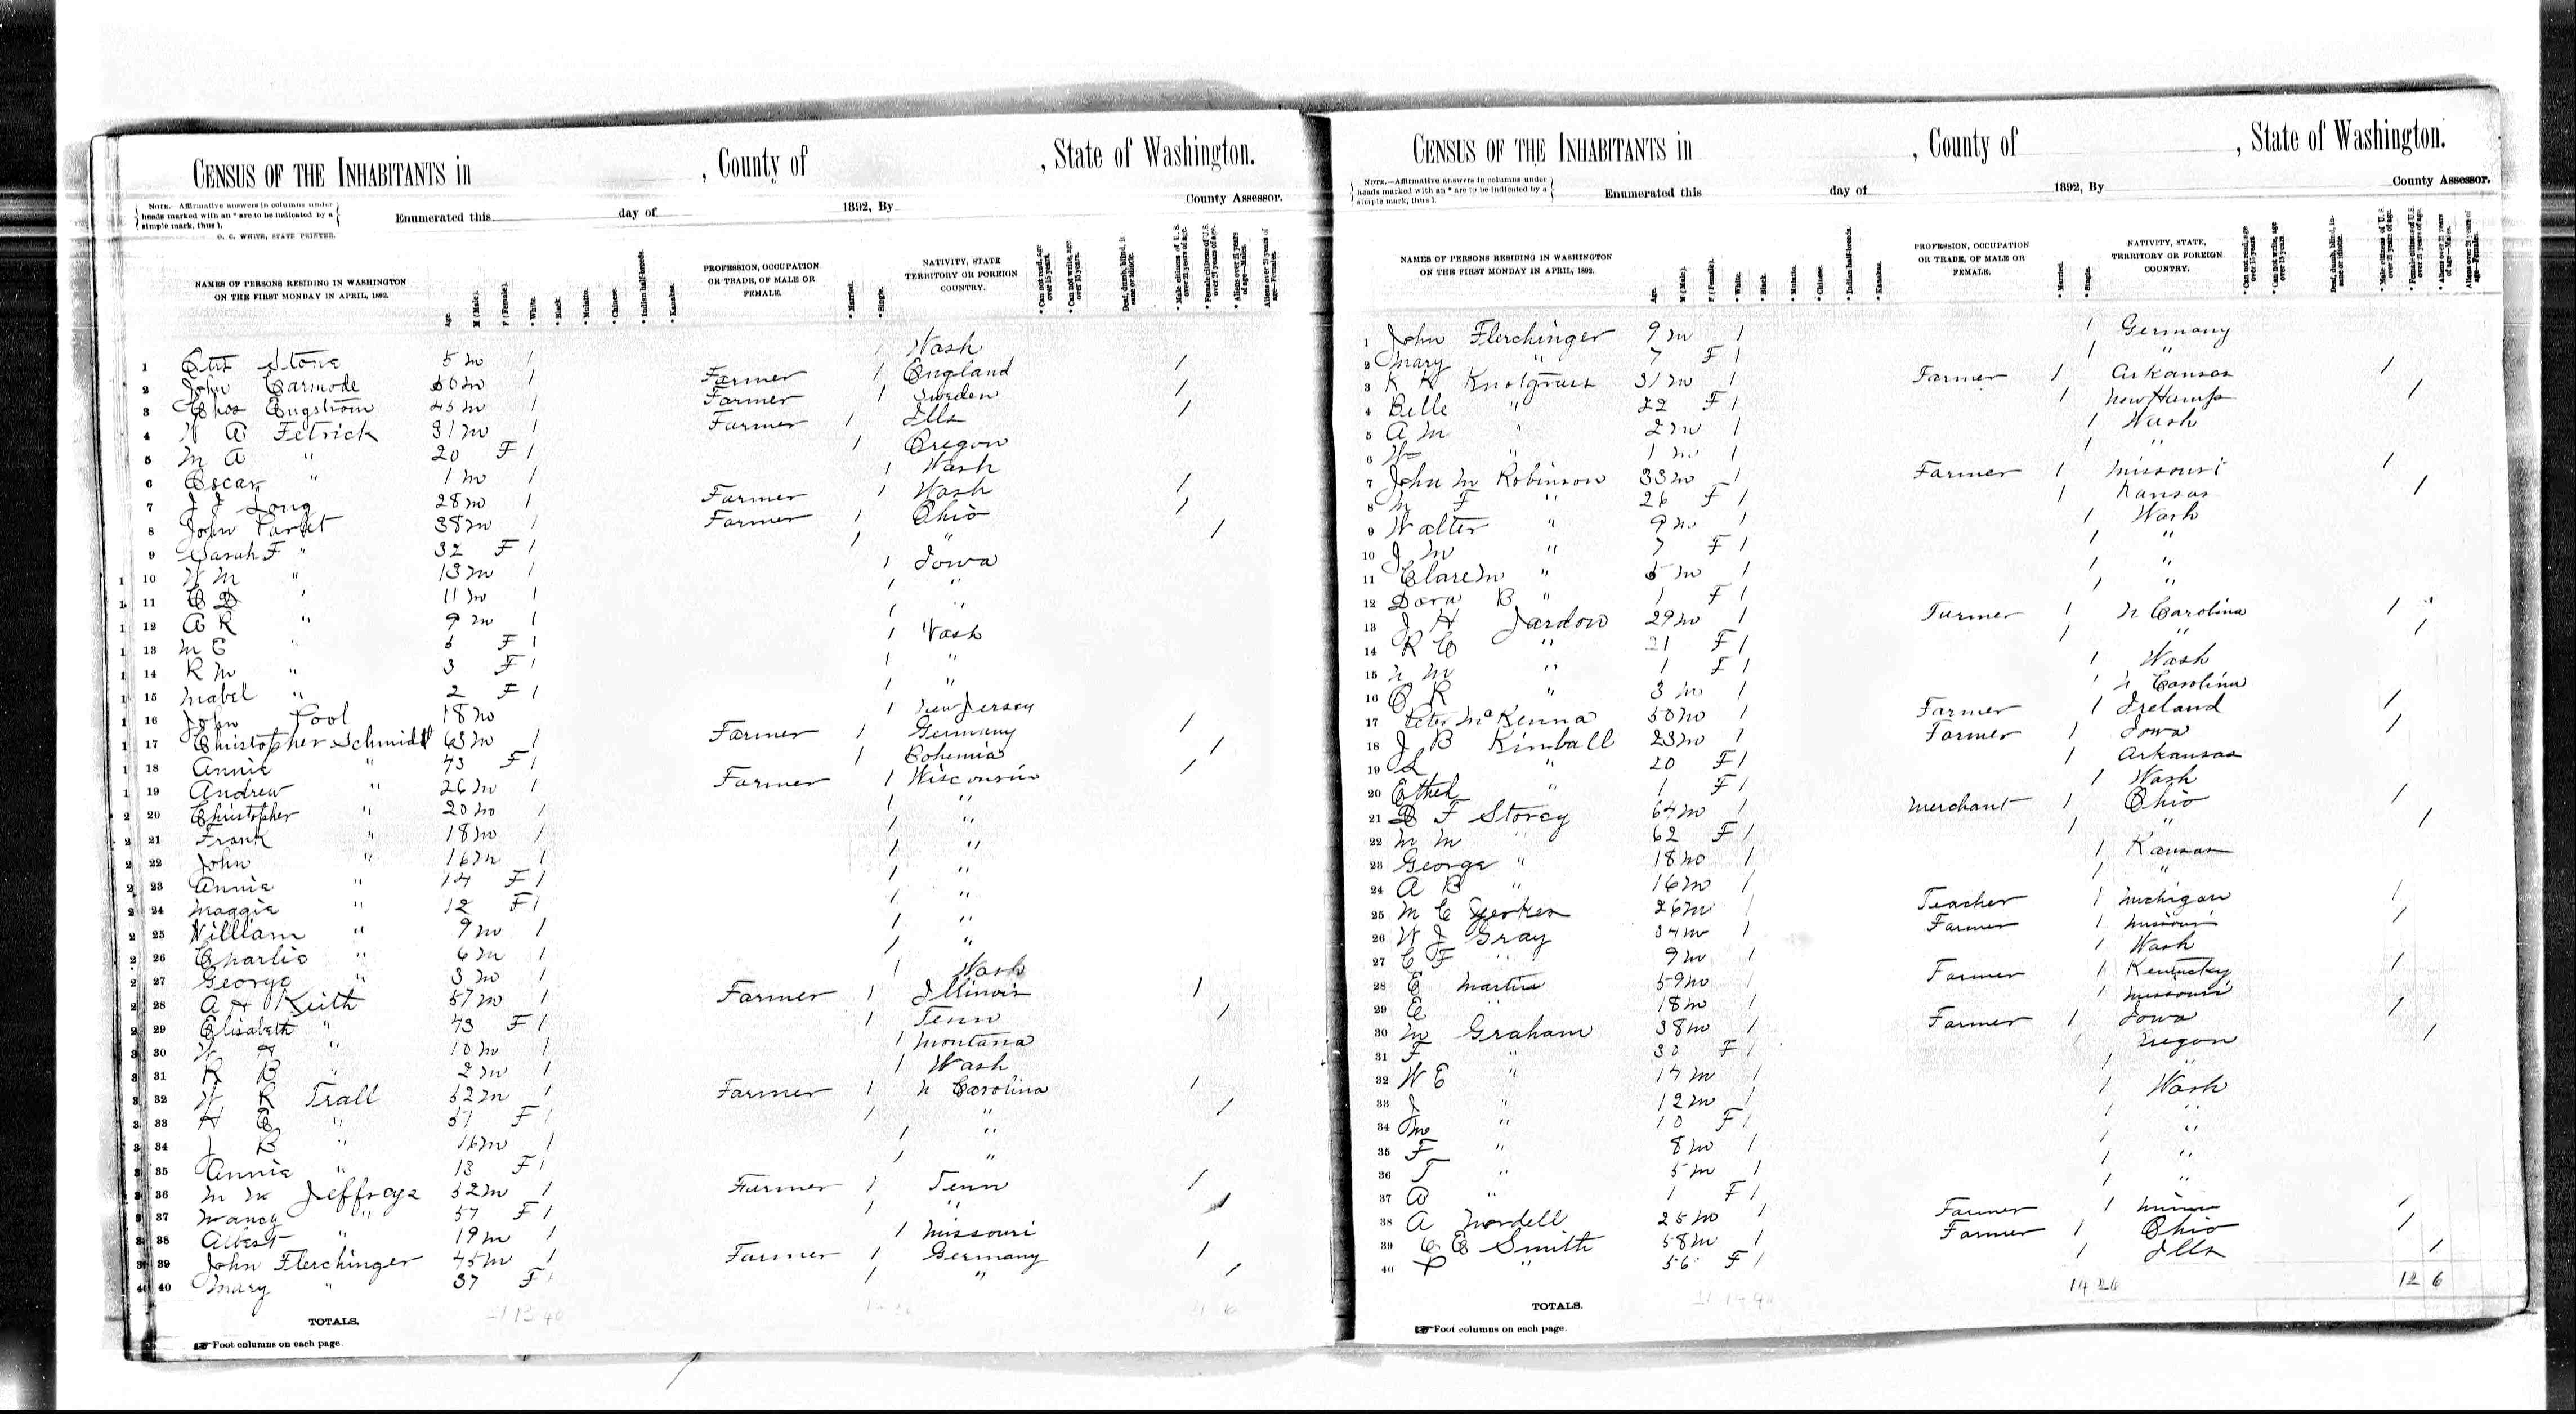 CENSUS OF THE INHABITANTS in , County of , State of Washington.
NOTE.—Affirmative answers in columns under heads marked with an * are to be indicated by a simple mark, thus 1.
O. C. WHITE, STATE PRINTER.
Enumerated this day of 1892, By County Assessor.
NAMES OF PERSONS RESIDING IN WASHINGTON ON THE FIRST MONDAY IN APRIL, 1892. Age. M (Male). F (Female). * White. * Black. * Mulatto. * Chinese. * Indian half-breeds. * Kanakas. PROFESSION, OCCUPATION OR TRADE, OF MALE OR FEMALE. * Married. * Single. NATIVITY, STATE TERRITORY OR FOREIGN COUNTRY. * Can not read, age over 15 years. * Can not write, age over 15 years. Deaf, dumb, blind, insane or idiotic. * Male citizens of U. S. over 21 years of age. * Female citizens of U.S. over 21 years of age. * Aliens over 21 years of age—Males. Aliens over 21 years of age—Females.
1 Stone 5 m 1 1 Wash
2 John Carmode 56 m 1 Farmer 1 England 1
3 Chas Engstrom 45 m 1 Farmer 1 Sweden 1
4 W A Fetrick 31 m 1 Farmer 1 Ills 1
5 M A " 20 F 1 1 Oregon
6 Oscar " 1 m 1 1 Wash
7 J F Long 28 m 1 Farmer 1 Wash 1
8 John 38 m 1 Farmer 1 Ohio 1
9 Sarah F " 32 F 1 1 " 1
10 W M " 13 m 1 1 Iowa
11 C D " 11 m 1 1 "
12 A R " 9 m 1 1 "
13 M E " 5 F 1 1 Wash
14 R M " 3 F 1 1 "
15 Mabel " 2 F 1 1 "
16 John Pool 18 m 1 New Jersey
17 Christopher Schmidt 63 m 1 Farmer 1 Germany 1
18 Annie " 43 F 1 1 Bohemia 1
19 Andrew " 26 m 1 Farmer 1 Wisconsin 1
20 Christopher " 20 m 1 1 "
21 Frank " 18 m 1 1 "
22 John " 16 m 1 1 "
23 Annie " 14 F 1 1 "
24 Maggie " 12 F 1 1 "
25 William " 9 m 1 1 "
26 Charlie " 6 m 1 1 "
27 George " 3 m 1 1 Wash
28 A H Keith 57 m 1 Farmer 1 Illinois 1
29 Elisabeth " 43 F 1 1 Tenn 1
30 W H " 10 m 1 1 Montana
31 R B " 2 m 1 1 Wash
32 W R Trall 52 m 1 Farmer 1 N Carolina 1
33 H E " 51 F 1 1 " 1
34 J B " 16 m 1 1 "
35 Annie " 13 F 1 1 "
36 M M Jeffreys 52 m 1 Farmer 1 Tenn 1
37 Nancy " 57 F 1 1 " 1
38 Albert " 19 m 1 1 Missouri
39 John Flerchinger 45 m 1 Farmer 1 Germany 1
40 Mary " 37 F 1 1 " 1
TOTALS.
Foot columns on each page.
CENSUS OF THE INHABITANTS in , County of , State of Washington.
NOTE.—Affirmative answers in columns under heads marked with an * are to be indicated by a simple mark, thus 1.
Enumerated this day of 1892, By County Assessor.
NAMES OF PERSONS RESIDING IN WASHINGTON ON THE FIRST MONDAY IN APRIL, 1892. Age. M (Male). F (Female). * White. * Black. * Mulatto. * Chinese. * Indian half-breeds. * Kanakas. PROFESSION, OCCUPATION OR TRADE, OF MALE OR FEMALE. * Married. * Single. NATIVITY, STATE, TERRITORY OR FOREIGN COUNTRY. * Can not read, age over 15 years. * Can not write, age over 15 years. Deaf, dumb, blind, insane or idiotic. * Male citizens of U. S. over 21 years of age. * Female citizens of U.S. over 21 years of age. * Aliens over 21 years of age—Males. Aliens over 21 years of age—Females.
1 John Flerchinger 9 m 1 1 Germany
2 Mary " 7 F 1 1 "
3 K K Knotgrass 31 m 1 Farmer 1 Arkansas 1
4 Belle " 22 F 1 1 New Hamp 1
5 A M " 2 m 1 1 Wash
6 W " 1 m 1 1 "
7 John M Robinson 33 m 1 Farmer 1 Missouri 1
8 M F " 26 F 1 1 Kansas 1
9 Walter " 9 m 1 1 Wash
10 J M " 7 F 1 1 "
11 Clare M " 5 m 1 1 "
12 Dora B " 1 F 1 1 "
13 J H Jardow 29 m 1 Farmer 1 N Carolina 1
14 R C " 21 F 1 1 " 1
15 N M " 1 F 1 1 Wash
16 C R " 3 m 1 1 N Carolina
17 Peter McKenna 50 m 1 Farmer 1 Ireland 1
18 J B Kimball 23 m 1 Farmer 1 Iowa 1
19 L " 20 F 1 1 Arkansas
20 Ethel " 1 F 1 1 Wash
21 D F Storey 64 m 1 Merchant 1 Ohio 1
22 M M " 62 F 1 1 " 1
23 George " 18 m 1 1 Kansas
24 A B " 16 m 1 1 "
25 M C Yerkes 26 m 1 Teacher 1 Michigan 1
26 W J Gray 34 m 1 Farmer 1 Missouri 1
27 C F " 9 m 1 1 Wash
28 E Martin 59 m 1 Farmer 1 Kentucky 1
29 E " 18 m 1 1 Missouri
30 M Graham 38 m 1 Farmer 1 Iowa 1
31 F " 30 F 1 1 Oregon 1
32 W E " 14 m 1 1 "
33 J " 12 m 1 1 Wash
34 M " 10 F 1 1 "
35 F " 8 m 1 1 "
36 T " 5 m 1 1 "
37 A " 1 F 1 1 "
38 A Nordell 25 m 1 Farmer 1 Minn 1
39 C E Smith 58 m 1 Farmer 1 Ohio 1
40 " 56 F 1 1 Ills 1
14 26 12 6
TOTALS.
Foot columns on each page.